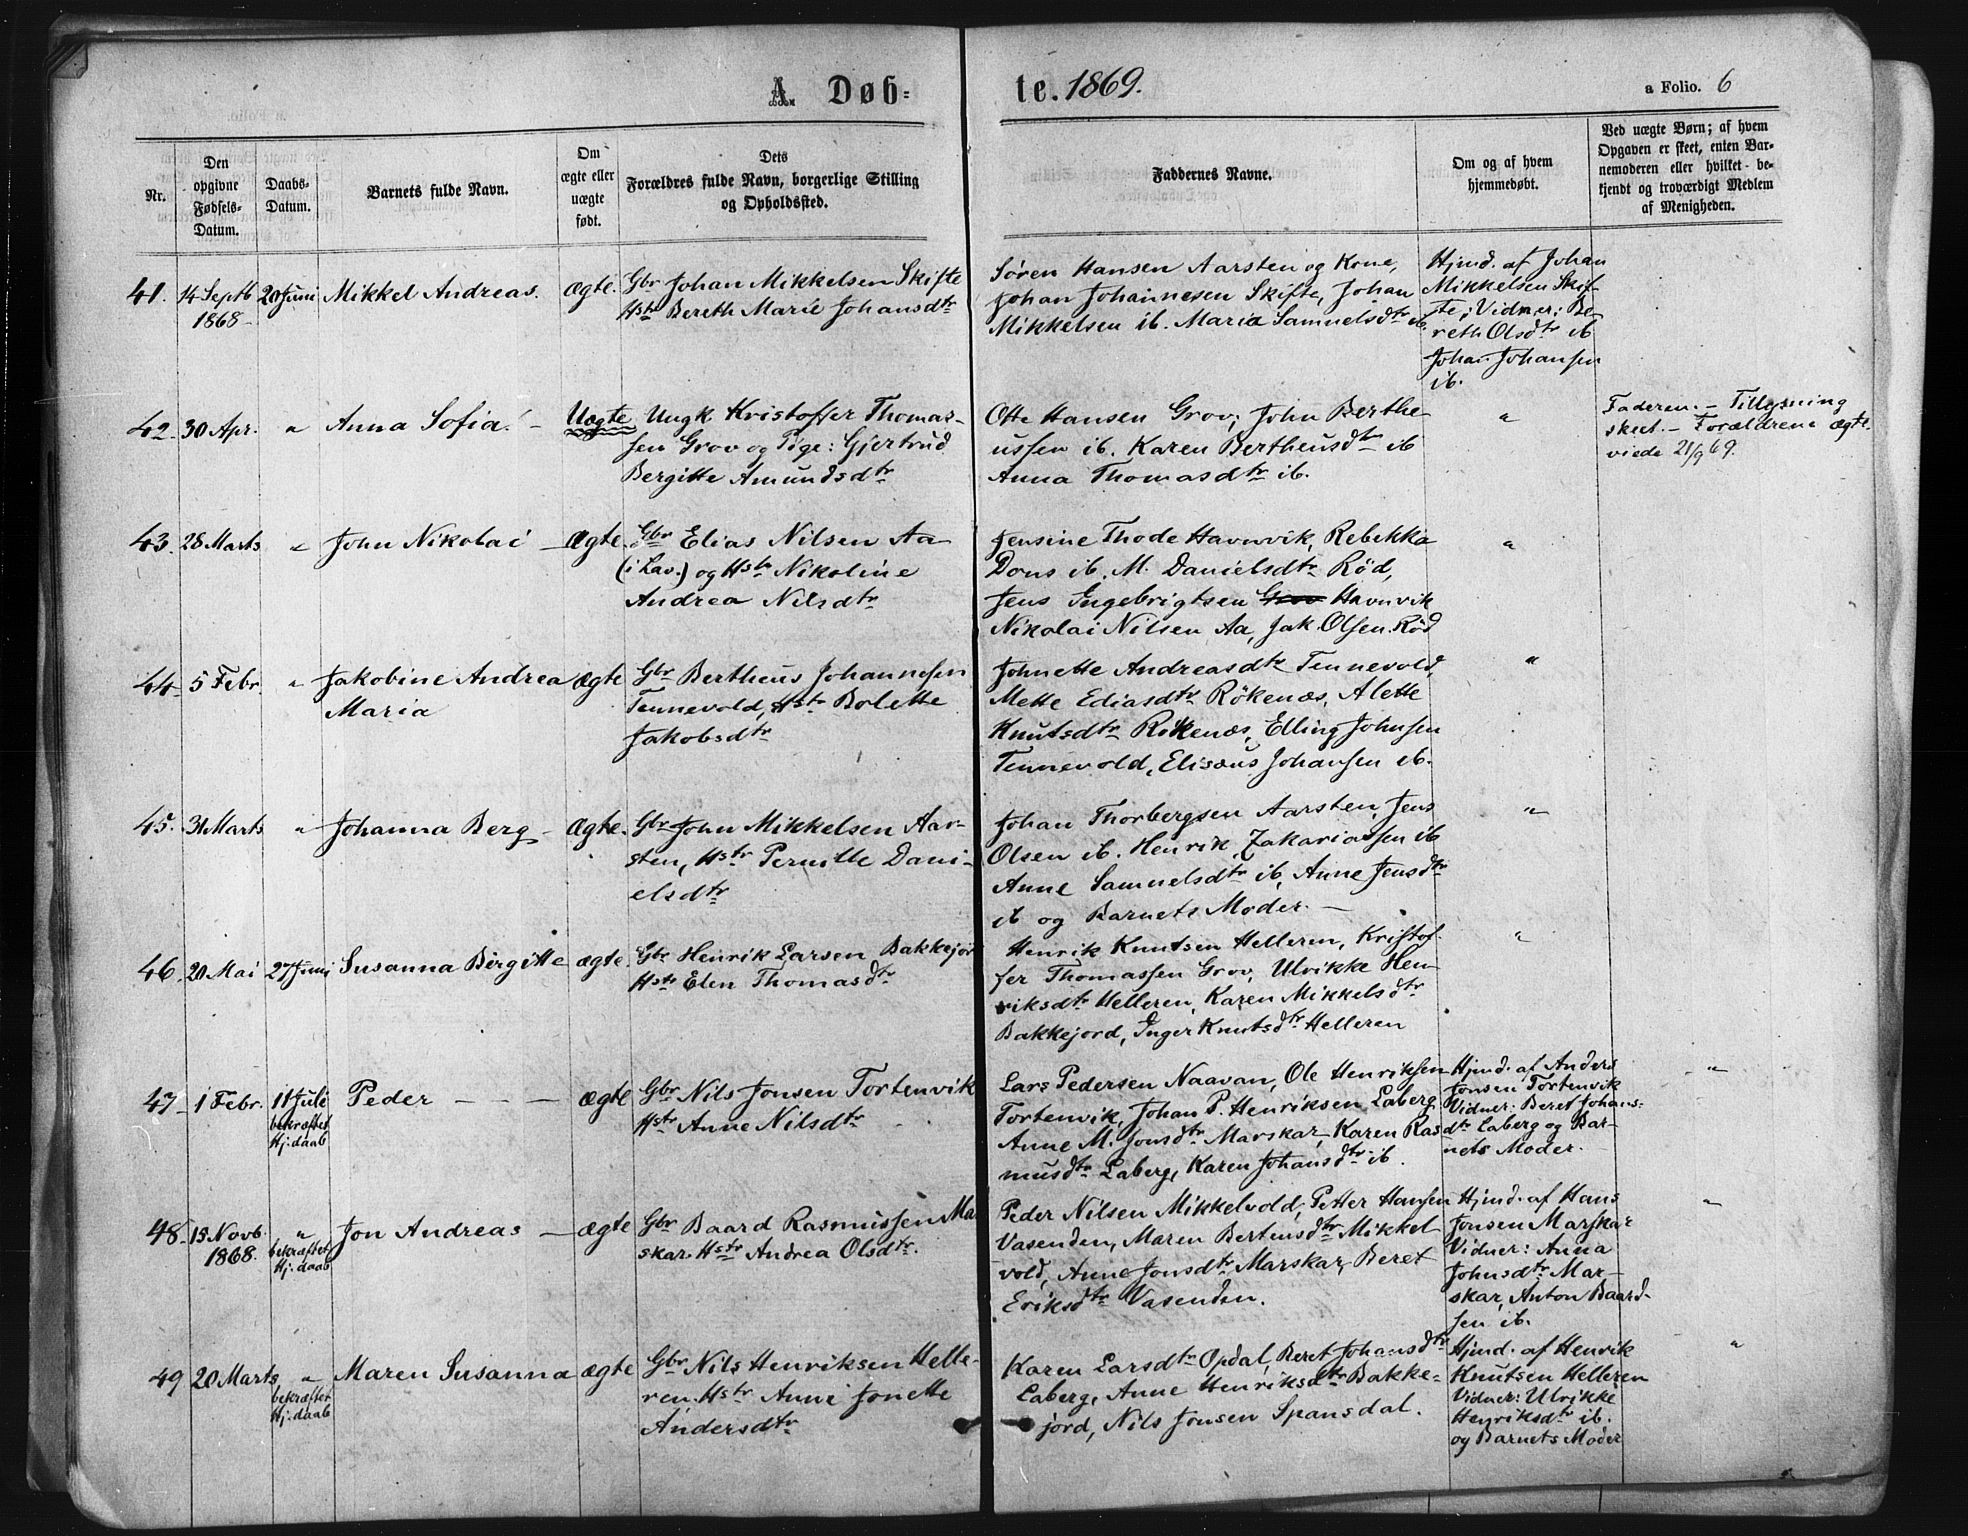 A. Døb-
te. 1869.
a Folio. 6
Nr.
Den
opgivne
Fødsels-
Datum.
Daabs-
Datum.
Barnets fulde Navn.
Om
ægte eller
uægte
født.
Dets
Forældres fulde Navn, borgerlige Stilling
og Opholdssted.
Faddernes Navne.
Om og af hvem
hjemmedøbt.
Ved uægte Børn; af hvem
Opgaven er skeet, enten Bar-
nemoderen eller hvilket be-
kjendt og troværdigt Medlem
af Menigheden.
41.
14 Septb
1868
20 Juni
Mikkel Andreas.
ægte.
Gbr Johan Mikkelsen Skifte
Hstr Bereth Marie Johansdtr
Søren Hansen Aarsten og Kone,
Johan Johannesen Skifte, Johan
Mikkelsen ib. Maria Samuelsdtr ib.
Hjmd. af Johan
Mikkelsen Skif-
te; Vidner: Be-
reth Olsdtr ib
Johan Johansen
ib.
42.
30 Apr.
"
Anna Sofia.
Uægte
Ungk. Kristoffer Thomas-
sen Grov og Pige: Gjertrud
Bergitte Amundsdtr
Otte Hansen Grov; John Berthe-
ussen ib. Karen Bertheusdtr ib
Anna Thomasdtr ib.
"
Faderen. – Tillysning
skeet. – Forældrene ægte-
viede 21/9 69.
43.
28 Marts
"
John Nikolai
Ægte.
Gbr Elias Nilsen Aa
(i Lav.) og Hstr Nikoline
Andrea Nilsdtr
Jensine Thode Havnvik, Rebekka
Dons ib. M. Danielsdtr Rød,
Jens Ingebrigtsen Grov Havnvik
Nikolai Nilsen Aa, Jak. Olsen Rød
"
44
5 Febr.
"
Jakobine Andrea
Maria
ægte
Gbr Bertheus Johannesen
Tennevold, Hstr Bolette
Jakobsdtr
Johnette Andreasdtr Tennevold,
Mette Ediasdtr Røkenæs, Alette
Knutsdtr Røkenæs, Elling Johnsen
Tennevold, Elisæus Johansen ib.
"
45.
31 Marts
"
Johanna Berg
Ægte.
Gbr John Mikkelsen Aar-
sten, Hstr Pernille Dani-
elsdtr
Johan Thorbergsen Aarsten, Jens
Olsen ib. Henrik Zakariassen ib
Anne Samuelsdtr ib, Anne Jensdtr
ib og Barnets Moder.
"
46.
20 Mai
27 Juni
Susanna Birgitte
ægte.
Gbr Henrik Larsen Bakkejor
Hstr Elen Thomasdtr
Henrik Knutsen Helleren, Kristof-
fer Thomassen Grov, Ulrikke Hen-
riksdtr Helleren, Karen Mikkelsdtr
Bakkejord, Inger Knutsdtr Helleren
"
47
1 Febr.
11 Juli
bekræftet
Hj:daab
Peder
ægte
Gbr Nils Jonsen Tortenvik
Hstr Anne Nilsdtr
Lars Pedersen Naavan, Ole Henriksen
Tortenvik, Johan P. Henriksen Laberg
Anne M. Jonsdtr Marskar, Karen Ras-
musdtr Laberg, Karen Johansdtr ib.
Hjmd. af Anders
Jonsen Tortenvik
Vidner: Beret Johans-
dtr Laberg og Bar-
nets Moder.
"
48
15 Novb.
1868.
"
bekræftet
Hj:daab
Jon Andreas
ægte
Gbr Baard Rasmussen Ma
skar. Hstr Andrea Olsdtr.
Peder Nilsen Mikkelvold, Petter Hansen
Vasenden, Maren Berteusdtr Mikkel
vold, Anne Jonsdtr Marskar, Beret
Eriksdtr Vasenden.
Hjmd. af Hans
Jonsen Marskar
Vidner: Anna
Johnsdtr Mar-
skar, Anton Baard-
sen ib.
"
49
20 Marts
"
bekræftet
Hj:daab
Maren Susanna
ægte
Gbr Nils Henriksen Helle-
ren. Hstr Anne Jonette
Andersdtr
Karen Larsdtr Opdal, Beret Johansdtr
Laberg, Anne Henriksdtr Bakke-
jord, Nils Jonsen Spansdal.
Hjmd. af Henrik
Knutsen Helleren
Vidner: Ulrikke
Henriksdtr ib.
og Barnets Moder
"